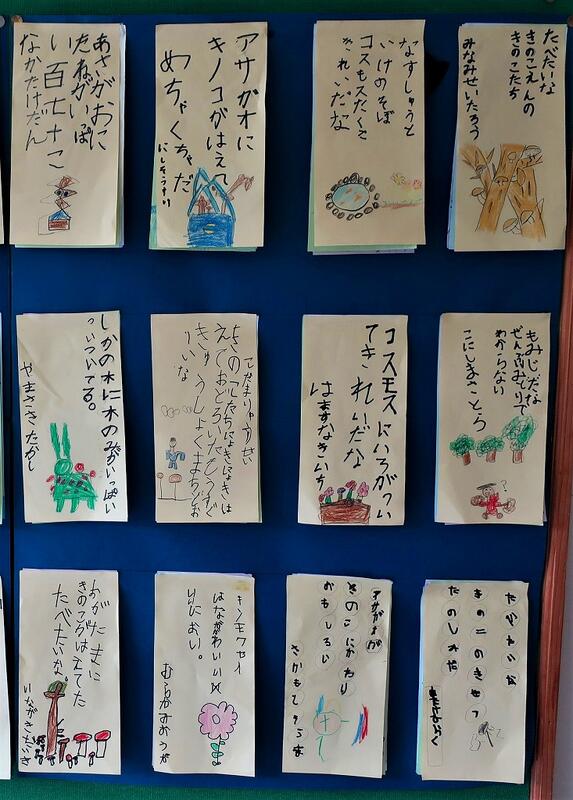 たべたいな
きのこえんの
きのこたち
みなみせいたろう
なすしゅうと
いけのそば
コスモス
きれいだな
アサガオに
キノコがはえて
めちゃくちゃだ
あさがおに
たねがいっぱ
い百七十こ
なかたけだん
もみじだな
ぜんぶみどりで
わからない
こにしまさとろ
コスモスにいろがつい
てきれいだな
こだまりゅうせい
きのこたちにょきにょきは
えておどろいたもうすぐ
きゅうしょくまちどお
しかの木に木のみがいっぱい
ついている。
やまさきたかし
きのこのきせつ
たのしみだ
アサガオが
きのこにかわり
おもしろい
さかもとそうま
キンモクセイ
はながかわいい
いいにおい。
むらかみおうが
おがたまに
きのこがはえてた
たべたいな。
いながきたいき